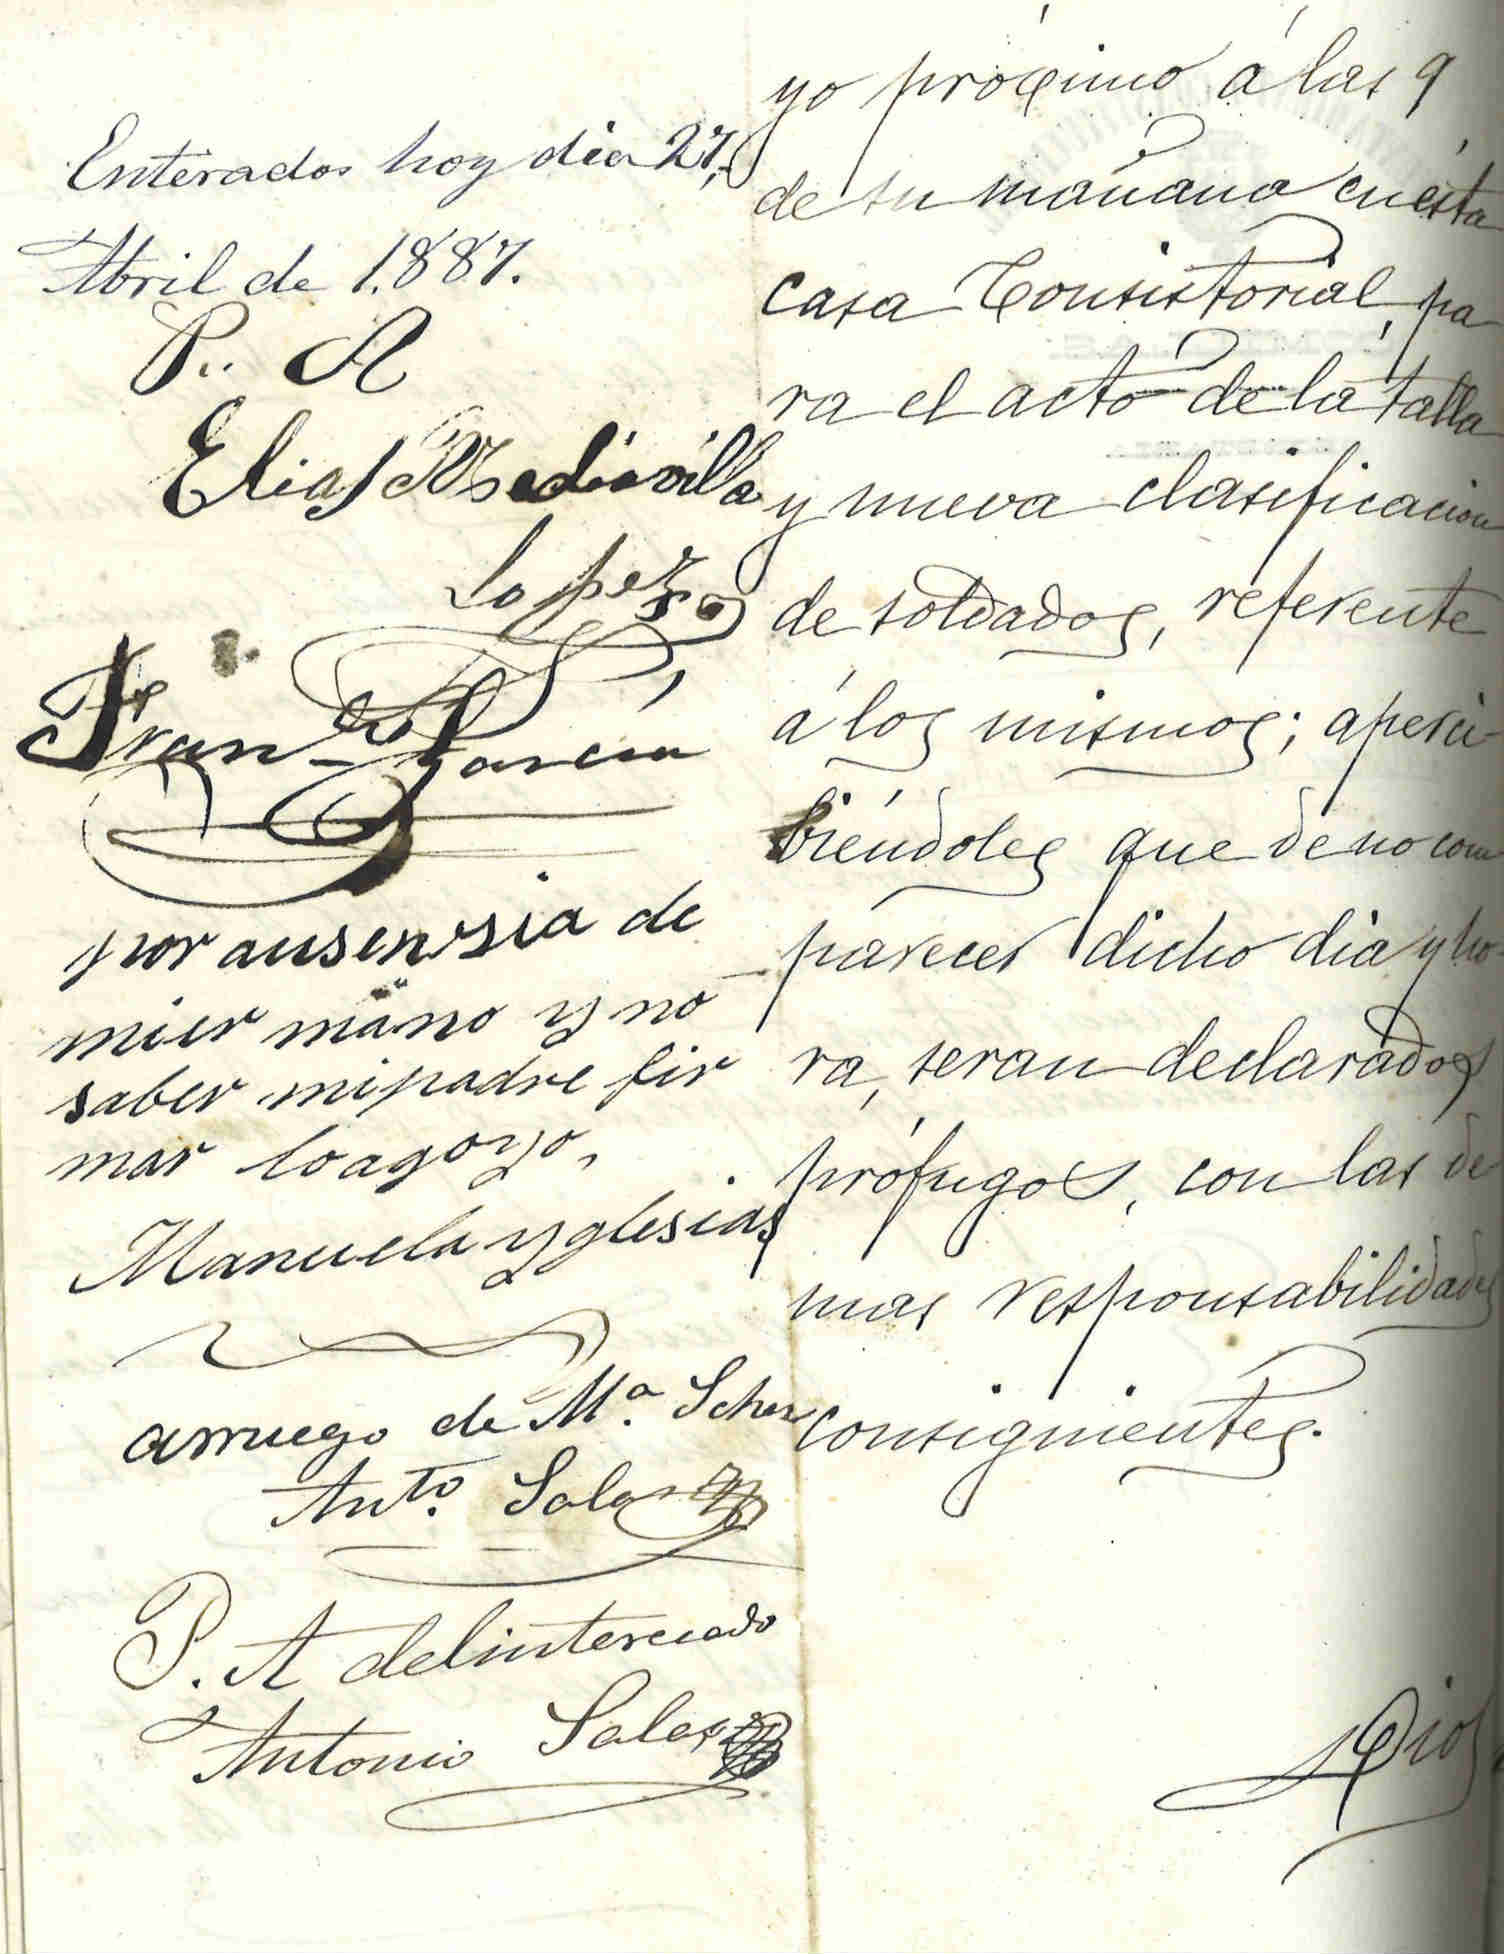 Enterados hoy dia 27,
Abril de 1.887.
P.. A
Elias Mediavilla
Lopez
Fran.co Garcia
por ausensia de
mier mano y no
saber mi padre fir
mar loagoyo,
Manuela yglesias
arruego de M.a Scher
Ant.o Salas
P. A del interesado
Antonio Salas
yo próximo á las 9
de su mañana en esta
casa Consistorial, pa
ra el acto de la talla
y nueva clasificacion
de soldados, referente
á los mismos; aperci-
biéndoles que de no com
parecer dicho dia y ho-
ra, seran declarados
prófugos, con las de
mas responsabilidades
consiguientes.
Dios